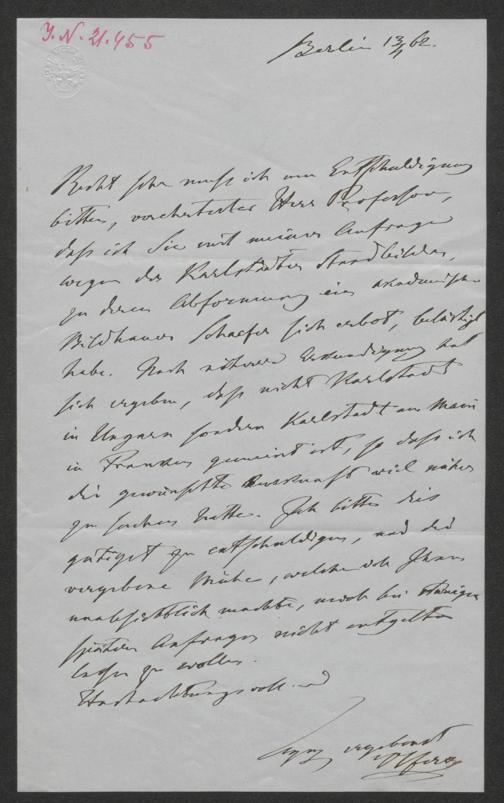 J. N. 21.455
Berlin 13/4 62.
Recht sehr muß ich um Entschuldigung
bitten, verehrtester Herr Professor,
daß ich Sie mit meiner Anfrage
wegen des Karlstädter Standbildes,
zu deren Abformung ein akademischer
Bildhauer Schaefer sich erbot, belästigt
habe. Nach näherer Erkundigung hat
sich ergeben, daß nicht Karlstadt
in Ungarn sondern Karlstadt am Main
in Franken gemeint ist, so daß ich
die gewünschte Auskunft viel näher
zu suchen hatte. Ich bitte dies
gütigst zu entschuldigen, und die
vergebene Mühe, welche ich Ihnen
unabsichtlich machte, mich bei etwaigen
späteren Anfragen nicht entgelten
lassen zu wollen.
Hochachtungsvoll und
ganz ergebenst
Olfers